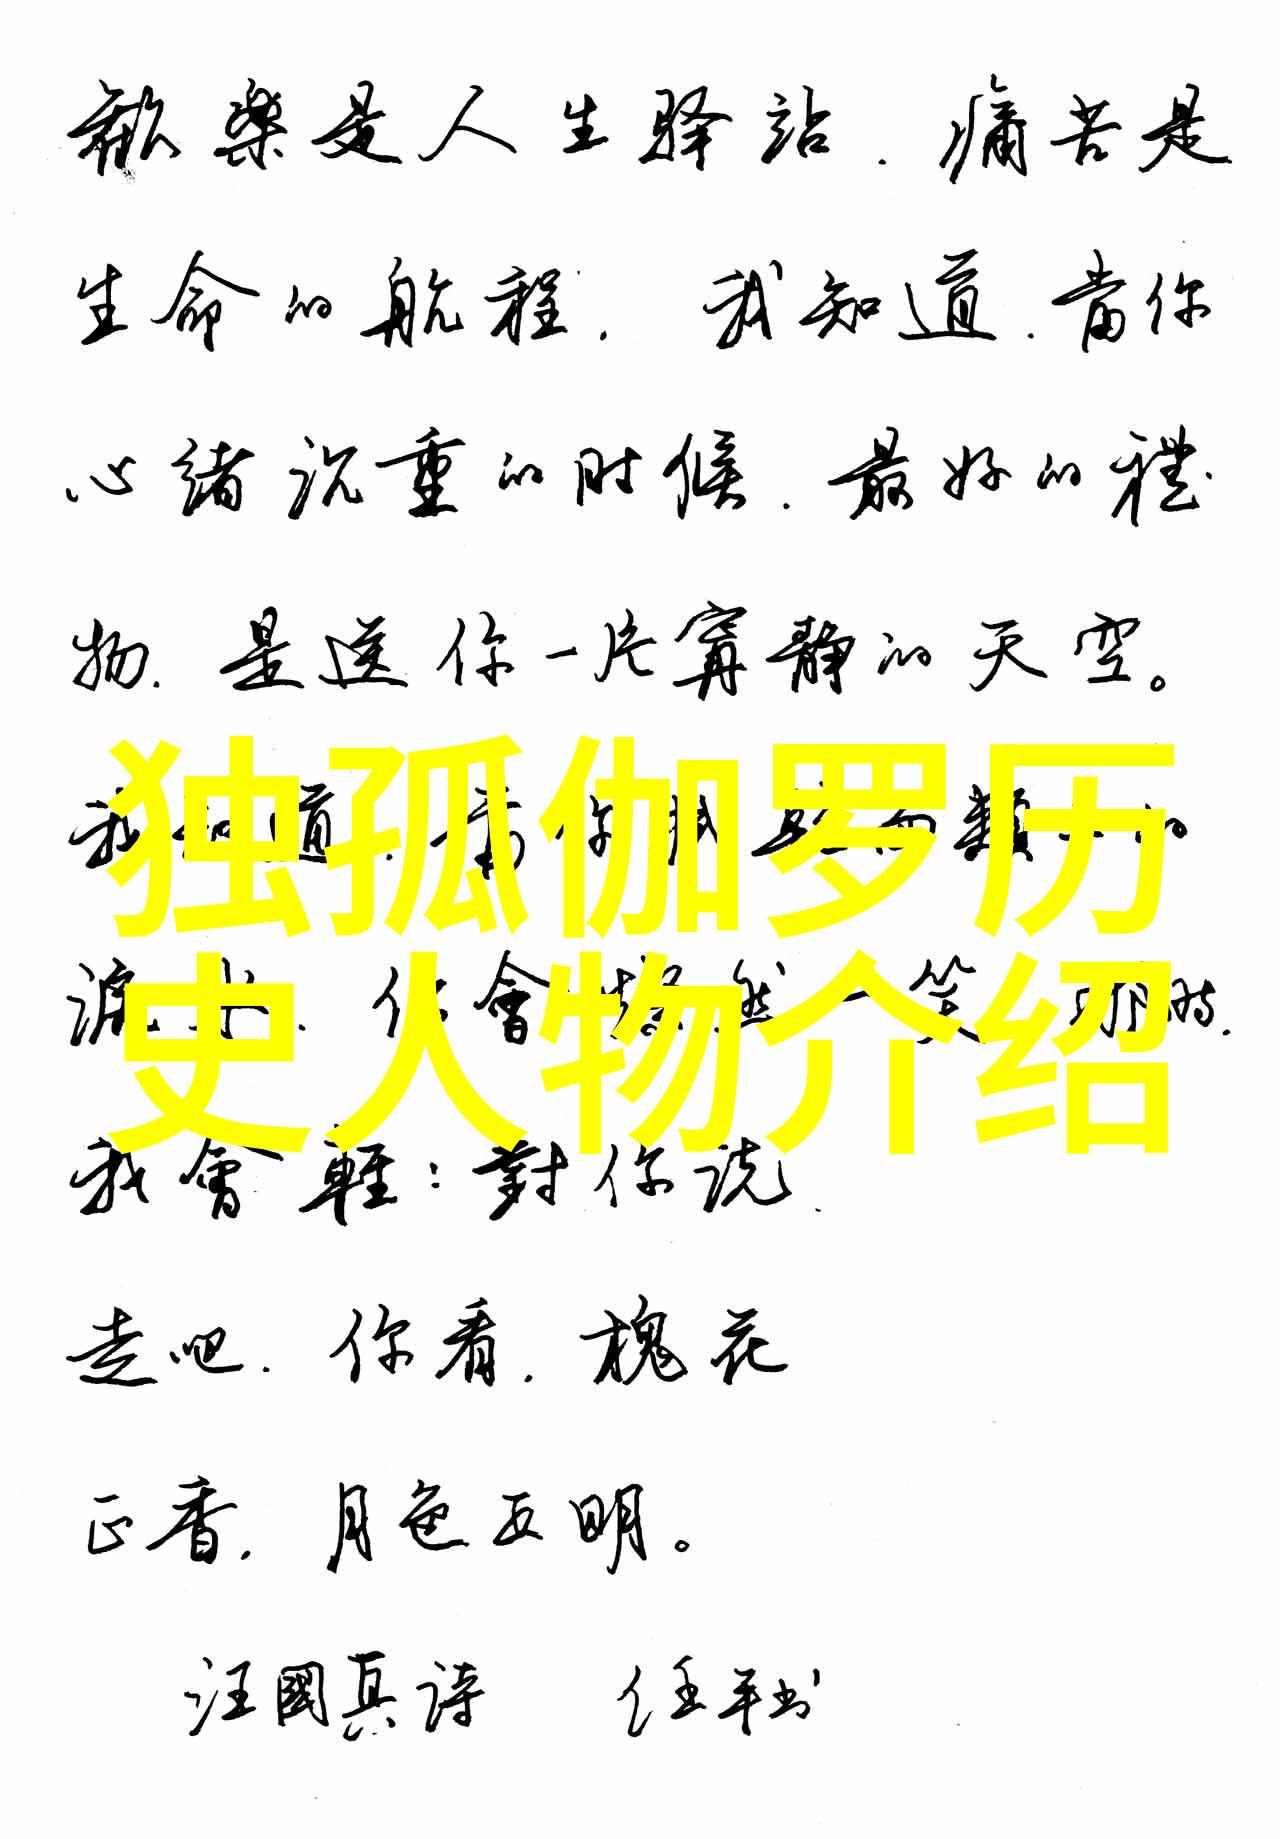 歡樂是人生驿站.痛苦是
生命的航程.我知道.當你
心緒沉重的时候.最好的禮
物.是送你一片寧靜的天空。
独孤伽罗历
我知道.當你
淚水.你會然一笑那時.
史人物介绍
我會輕:對你说.
走吧.你看.槐花
正香.月色正明。
汪國真诗 任平书